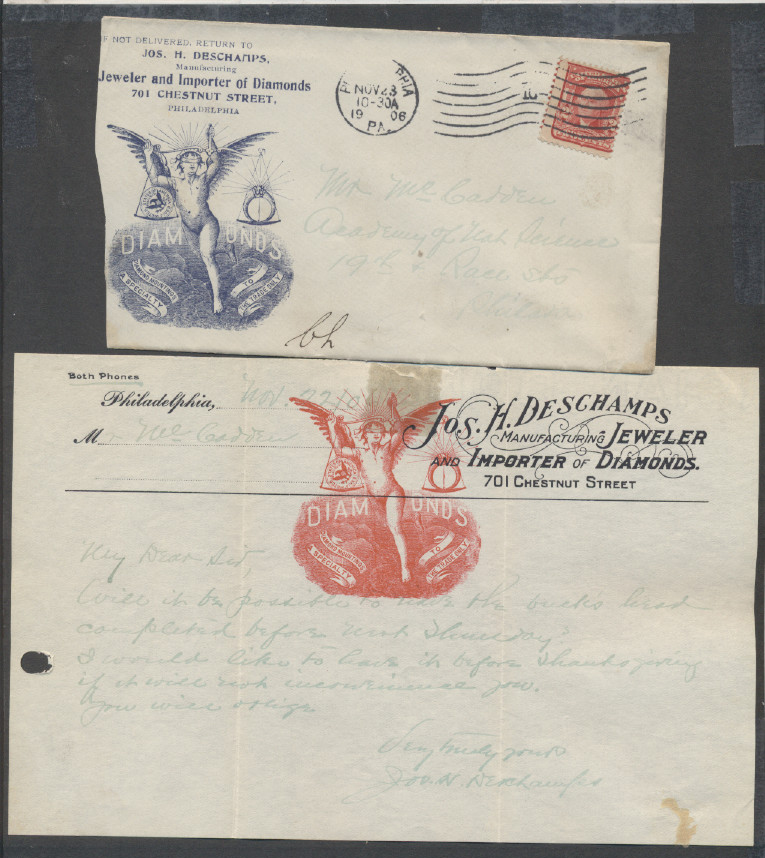 IF NOT DELIVERED, RETURN TO
JOS. H. DESCHAMPS,
Manufacturing
Jeweler and Importer of Diamonds
701 CHESTNUT STREET,
PHILADELPHIA
NOV 23
10-30A
19 06
PA.
DIAMONDS
DIAMOND MOUNTINGS
A SPECIALTY
TO
THE TRADE ONLY
Mr Mc Cadden
Academy of Nat Science
19th & Race sts
Phila
bh
Both Phones
Philadelphia, Nov. 22/06
Mr Mc Cadden
JOS. H. DESCHAMPS
MANUFACTURING JEWELER
AND IMPORTER OF DIAMONDS.
701 CHESTNUT STREET
DIAMONDS
DIAMOND MOUNTINGS
A SPECIALTY
TO
THE TRADE ONLY
My Dear Sir
Will it be possible to have the bucks head
completed before next Thursday?
I would like to have it before Thanksgiving
if it will not inconvenience you.
You will oblige
Very truly yours
Jos. H. Deschamps